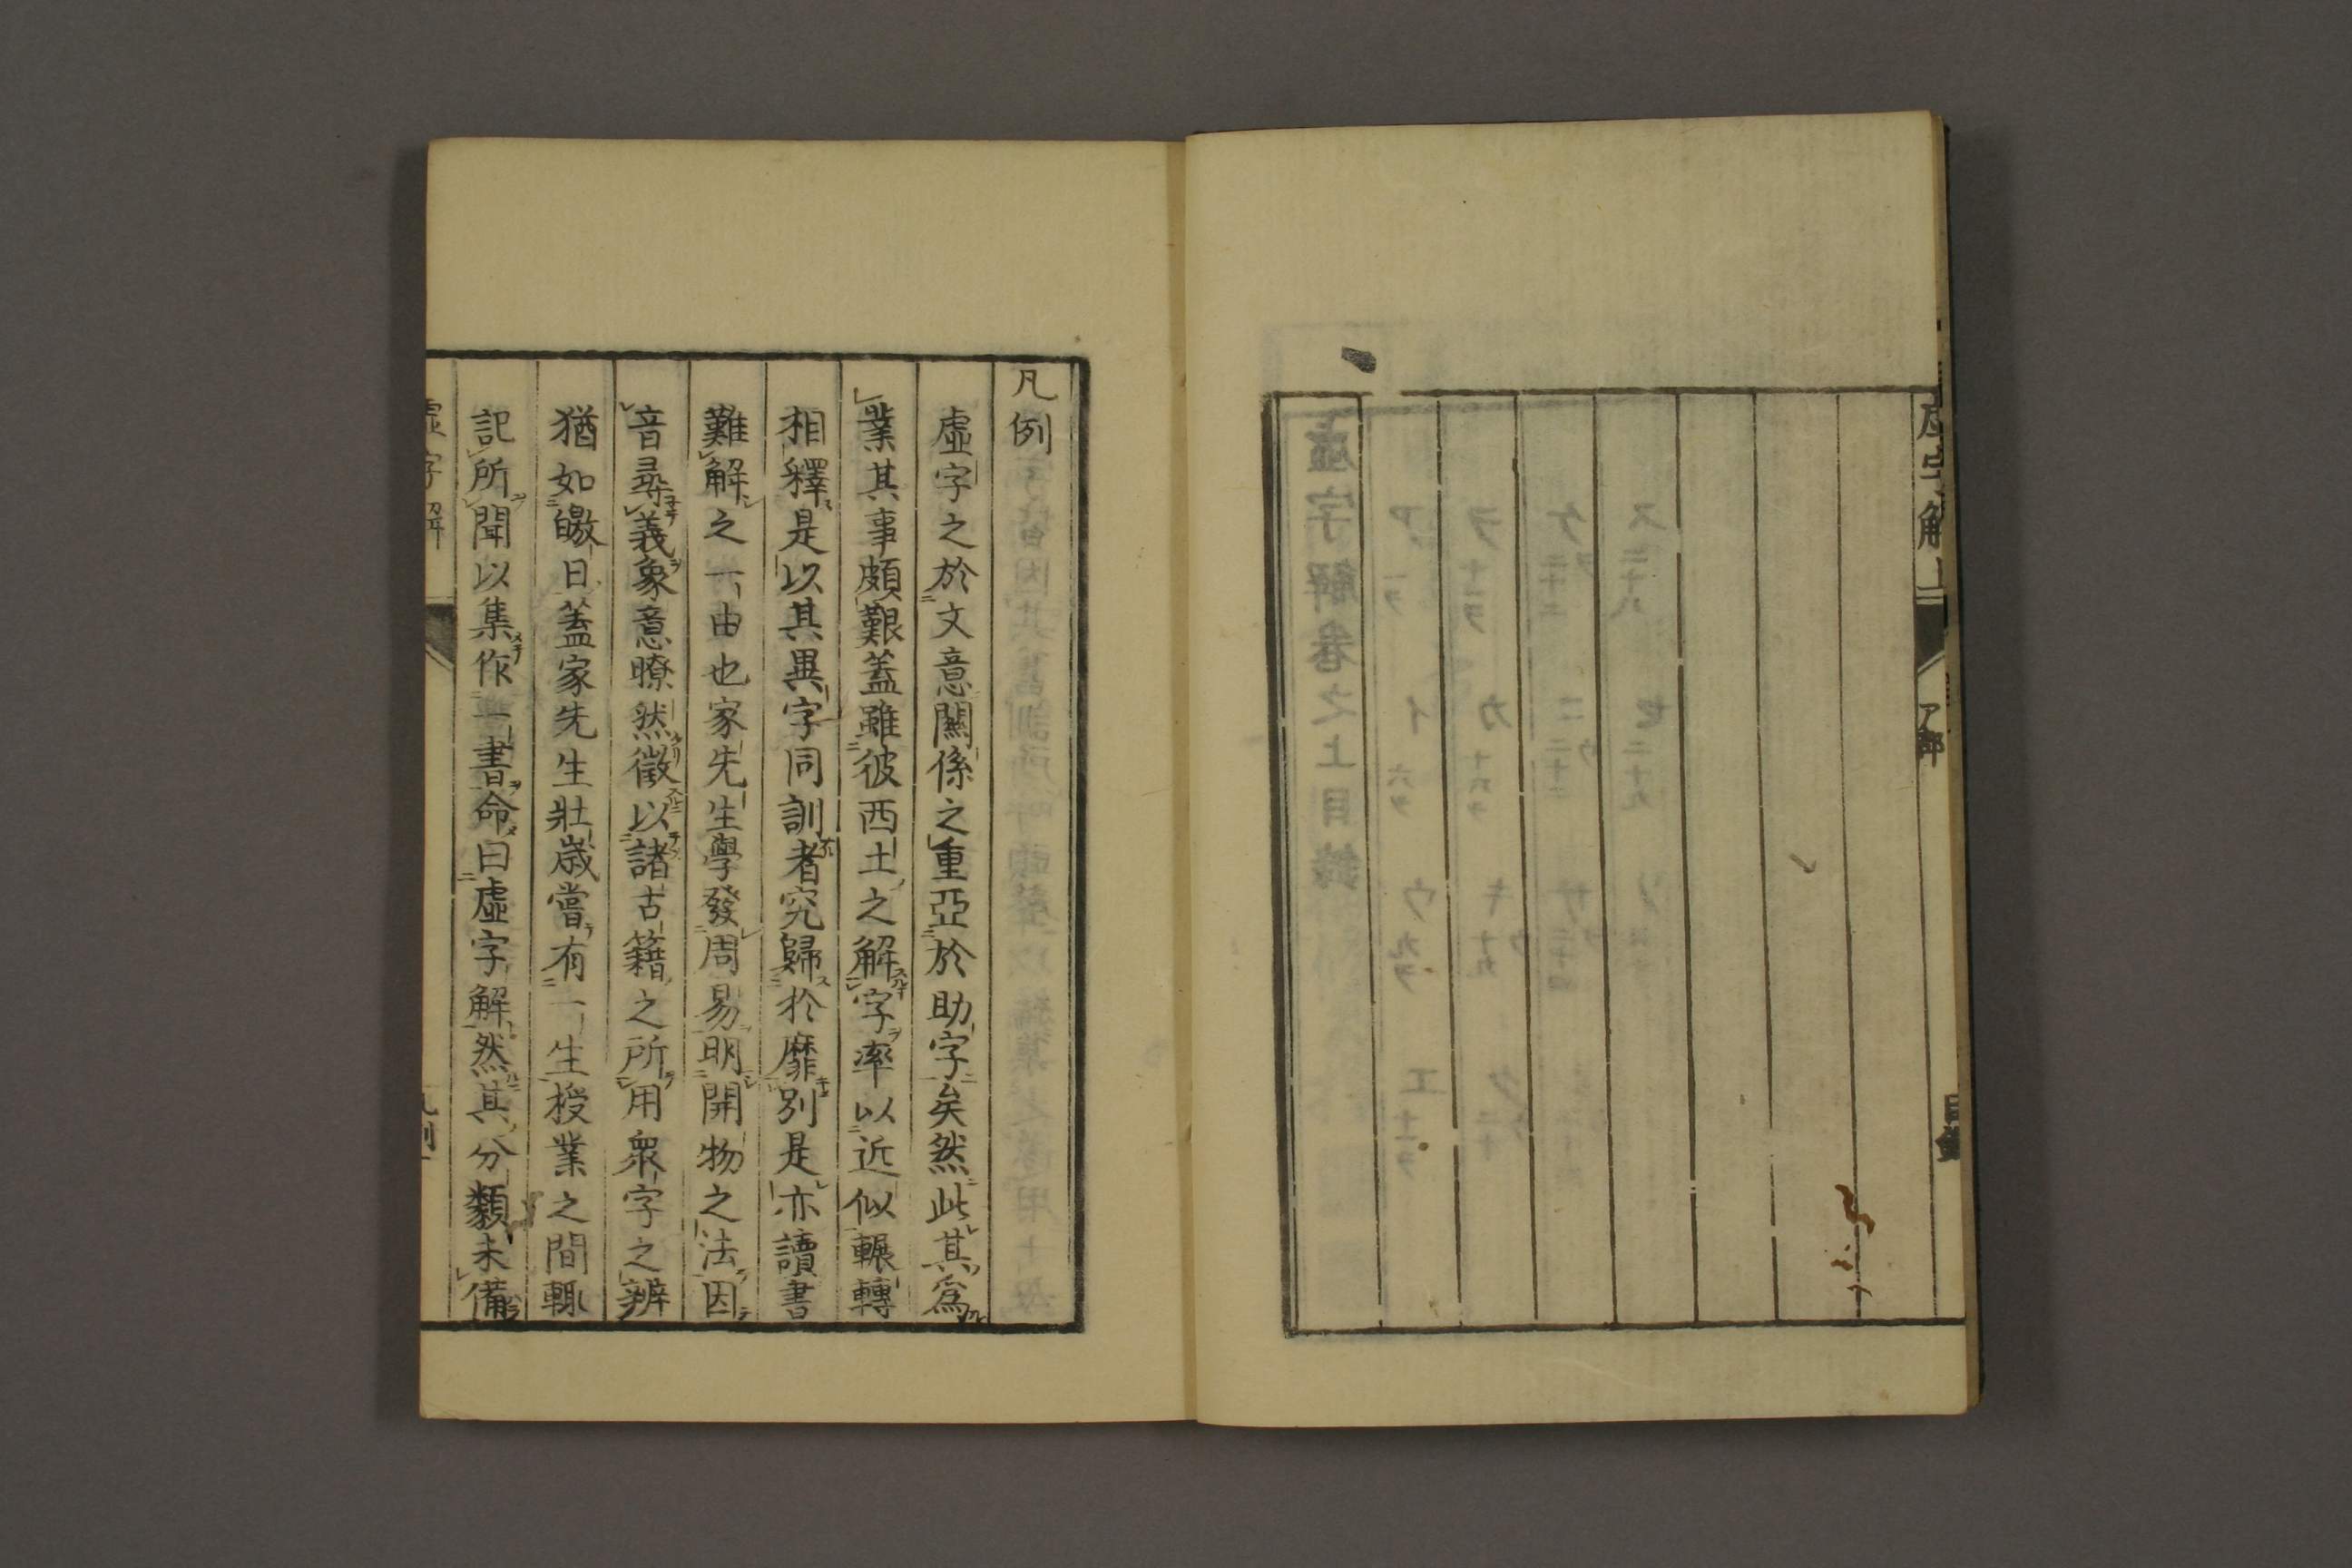 虛字解上
ア部
目錄
凡例
虛字之於文意關係之重亞於助字矣然此其爲
業其事頗艱蓋雖彼西土之解字率以近似輾轉
相釋是以其異字同訓者究歸於靡別是亦讀書
難解之一由也家先生學發周易明開物之法因
音尋義象意瞭然徵以諸古籍之所用衆字之辨
猶如皦日蓋家先生壯歲嘗有一生授業之間輒
記所聞以集作一書命曰虛字解然其分類未備
虛字解
凡例